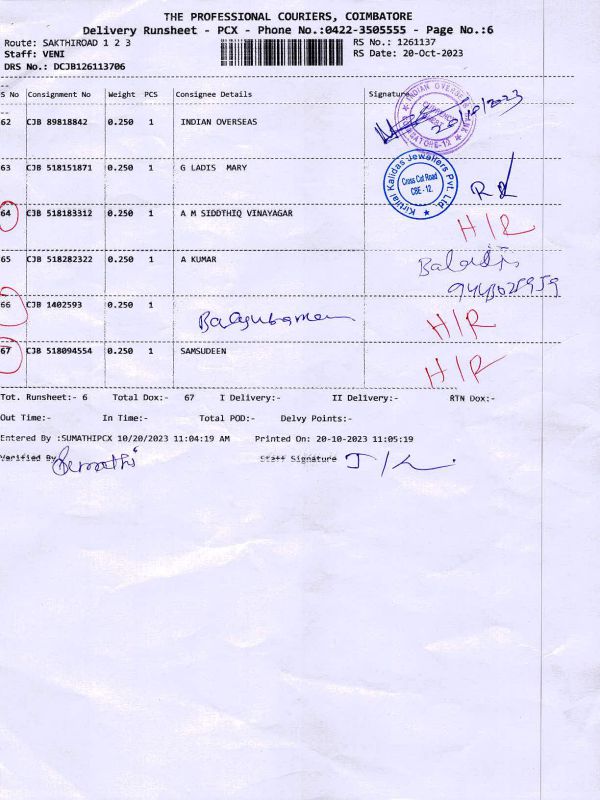 THE PROFESSIONAL COURIERS, COIMBATORE
Delivery Runsheet - PCX - Phone No.:0422-3505555 - Page No.:6
Route: SAKTHIROAD 1 2 3 RS No.: 1261137
Staff: VENI RS Date: 20-Oct-2023
DRS No.: DCJB126113706
S No Consignment No Weight PCS Consignee Details Signature
62 CJB 89818842 0.250 1 INDIAN OVERSEAS 20/10/2023
INDIAN OVERSEAS
63 CJB 518151871 0.250 1 G LADIS MARY
Kirtilal Kalidas Jewellers Pvt. Ltd.
Cross Cut Road
CBE - 12.
64 CJB 518183312 0.250 1 A M SIDDTHIQ VINAYAGAR H/R
65 CJB 518282322 0.250 1 A KUMAR
66 CJB 1402593 0.250 1 H/R
67 CJB 518094554 0.250 1 SAMSUDEEN H/R
Tot. Runsheet:- 6 Total Dox:- 67 I Delivery:- II Delivery:- RTN Dox:-
Out Time:- In Time:- Total POD:- Delvy Points:-
Entered By :SUMATHIPCX 10/20/2023 11:04:19 AM Printed On: 20-10-2023 11:05:19
Verified By Staff Signature